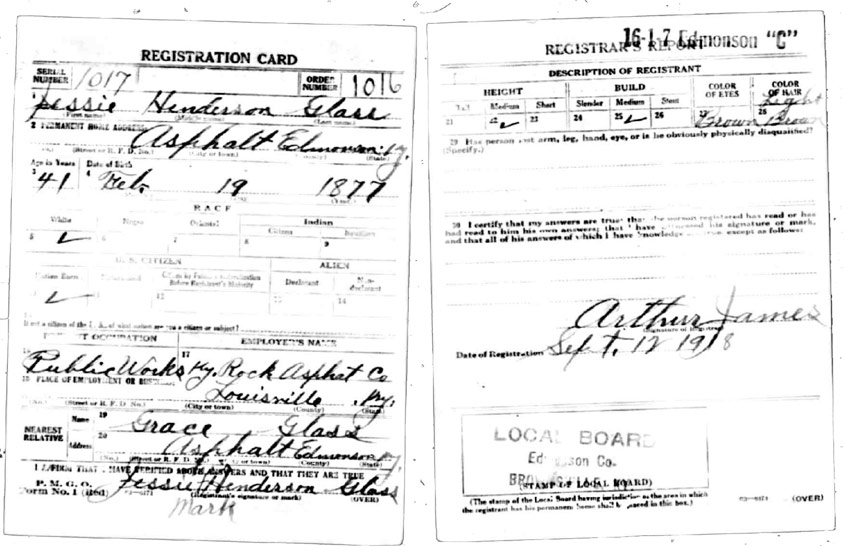 REGISTRATION CARD
SERIAL NUMBER 1017 ORDER NUMBER 1016
1 Jessie Henderson Glass
(First name) (Middle name) (Last name)
2 PERMANENT HOME ADDRESS:
Asphalt Edmonson Ky.
(No.) (Street or R. F. D. No.) (City or town) (State)
Age in Years Date of Birth
3 41 4 Feb. 19 1877
RACE
White Negro Oriental Indian
Citizen
5 ✓ 6 7 8 9
U. S. CITIZEN ALIEN
Native Born Citizen by Father's Naturalization Before Registrant's Majority Declarant Non-declarant
✓ 12 13 14
If not a citizen of the U. S., of what nation are you a citizen or subject?
PRESENT OCCUPATION EMPLOYER'S NAME
Public Works 17 Ky. Rock Asphat Co
18 PLACE OF EMPLOYMENT OR BUSINESS
Louisville Ky.
(No.) (Street or R. F. D. No.) (City or town) (County) (State)
NEAREST RELATIVE Name 19 Grace Glass
Address 20 Asphalt Edmonson Ky.
(No.) (Street or R. F. D. No.) (City or town) (County) (State)
I AFFIRM THAT I HAVE VERIFIED ABOVE ANSWERS AND THAT THEY ARE TRUE
P. M. G. O. Form No. 1 (Red) Jessie Henderson Glass
(Registrant's signature or mark) (OVER)
Mark
16-1-7 Edmonson "C"
REGISTRAR'S REPORT
DESCRIPTION OF REGISTRANT
HEIGHT BUILD COLOR OF EYES COLOR OF HAIR
Tall Medium Short Slender Medium Stout
21 22 ✓ 23 24 25 ✓ 26 27 Brown 28 Light Brown
29 Has person lost arm, leg, hand, eye, or is he obviously physically disqualified?
(Specify.)
30 I certify that my answers are true; that the person registered has read or has
had read to him his own answers; that I have witnessed his signature or mark,
and that all of his answers of which I have knowledge are true, except as follows:
Arthur James
(Signature of Registrar)
Date of Registration Sept. 12 1918
LOCAL BOARD
Edmonson Co.
(STAMP OF LOCAL BOARD)
(The stamp of the Local Board having jurisdiction of the area in which
the registrant has his permanent home shall be placed in this box.)
(OVER)